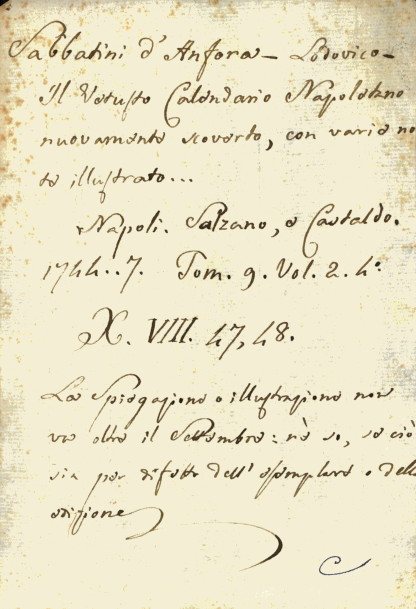 Sabbatini d'Anfora - Lodovico -
Il Vetusto Calendario Napoletano
nuovamente scoverto, con varie no
te illustrato...
Napoli. Salzano, e Castaldo.
1744..7. Tom. 9. Vol. 2. 4°
X. VIII. 47, 48.
La Spiegazione o illustrazione non
va oltre il Settembre: nè so, se ciò
sia per difetto dell' esemplare o della
edizione